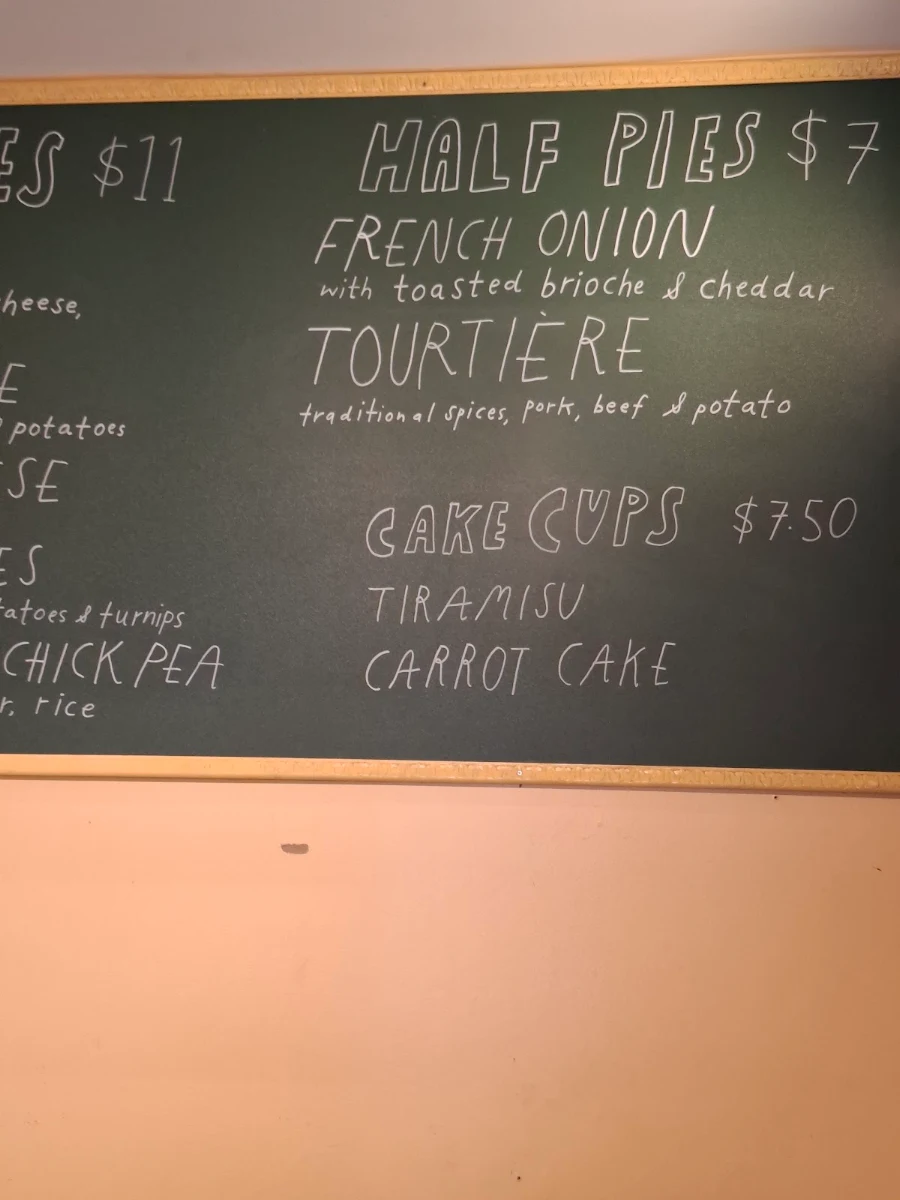 $11
potatoes
& turnips
CHICK PEA
rice
HALF PIES $7
FRENCH ONION
with toasted brioche & cheddar
TOURTIÈRE
traditional spices, pork, beef & potato
CAKE CUPS $7.50
TIRAMISU
CARROT CAKE